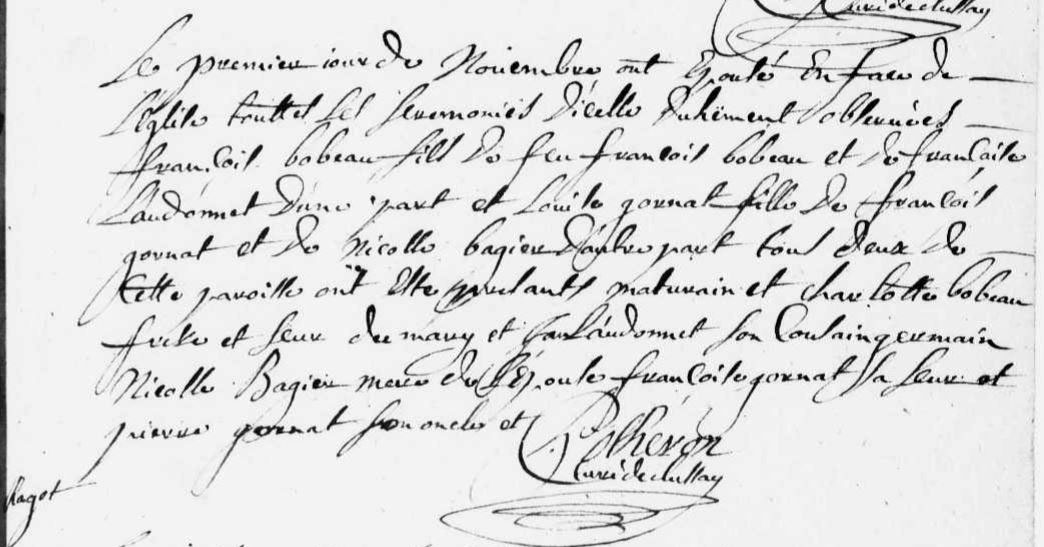 Curé de clussay
Le premier jour de Novembre ont Epousé En face de
L'Eglise touttes Les seremonies d'icelle duhëment observëes
françois bobeau fils de feu françois bobeau et de françoise
Laudonnet d'une part et Louise gornat fille de françois
gornat et de Nicolle bagier d'autre part tous deux de
Cette paroisse ont Este presants maturain et charlotte bobeau
frere et seur du mary et Laudonnet son Cousain germain
Nicolle Bagier mere de L'Epouse françoise gornat sa seur et
pierre gornat son oncle et
Curé de clussay
Ragot